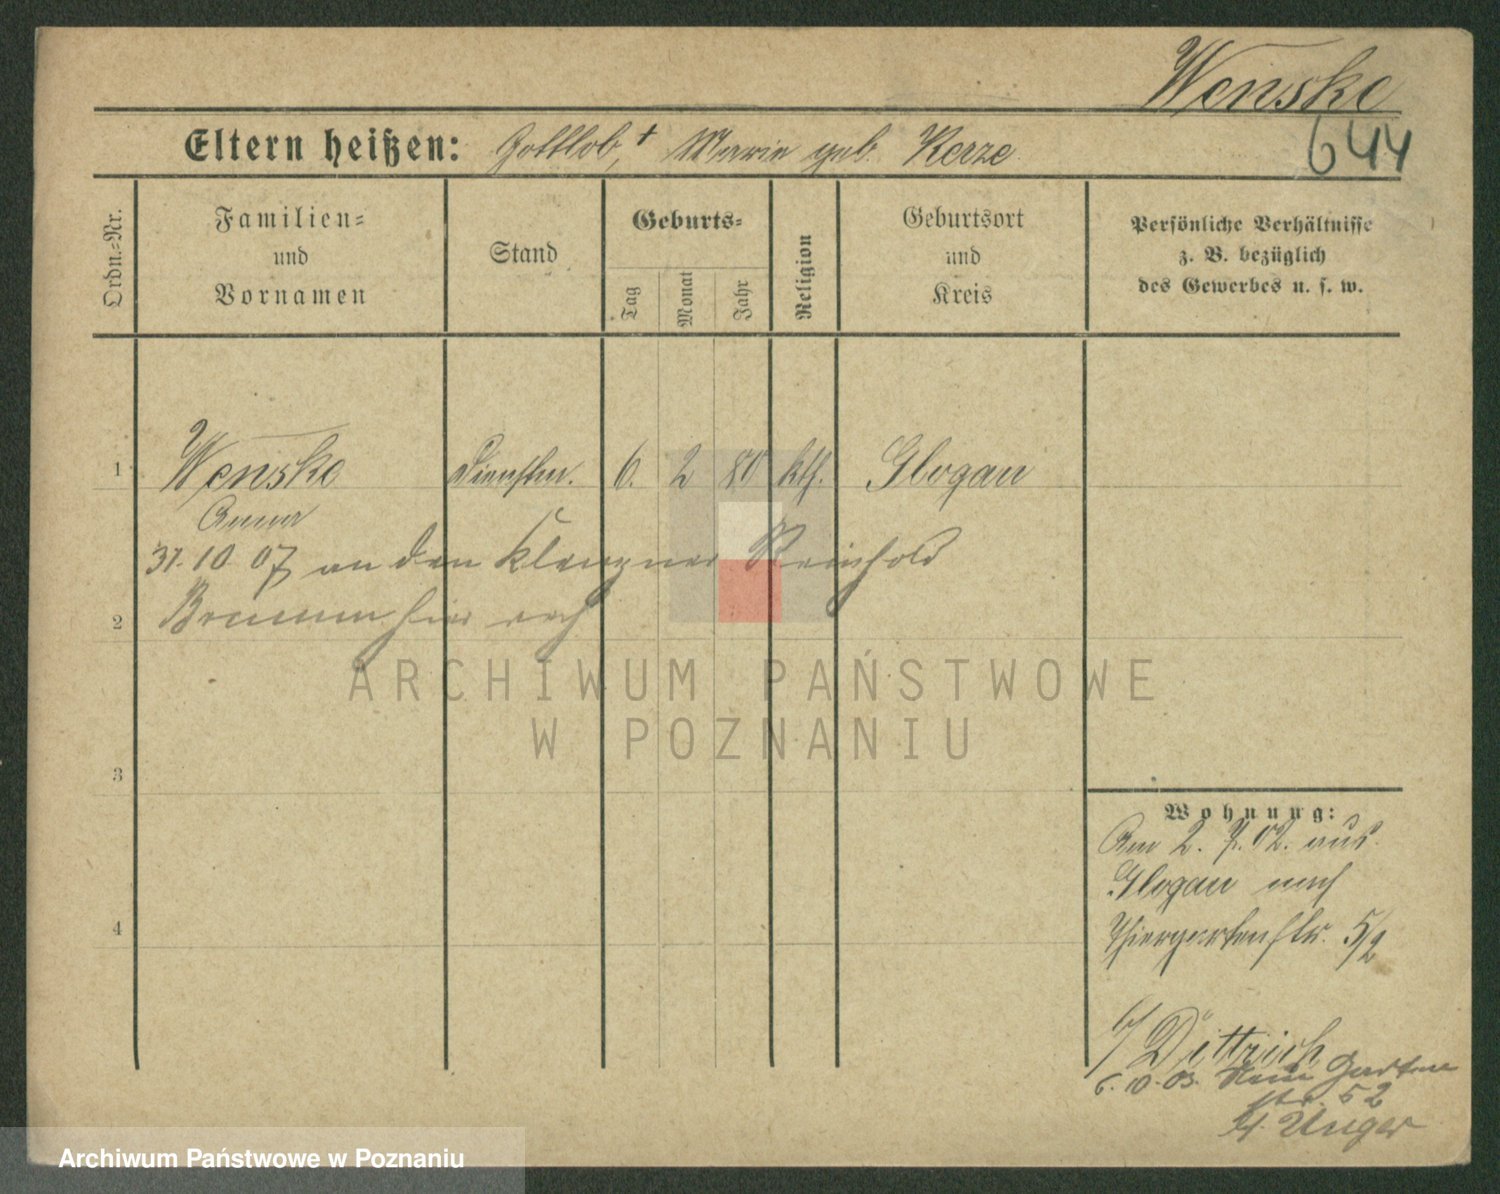 Wenske
644
Eltern heißen: Gottlob, † Marie geb. Kerze
Ordn.=Nr.
Familien=
und
Vornamen
Stand
Geburts=
Tag
Monat
Jahr
Religion
Geburtsort
und
Kreis
Persönliche Verhältnisse
z. B. bezüglich
des Gewerbes u. s. w.
1 Wenske Dienstm. 6. 2 80 kth. Glogau
Anna
31. 10. 07 an den Klempner Reinhold
2 hier verh
ARCHIWUM PAŃSTWOWE
W POZNANIU
3
4
Wohnung:
Am 2. 7. 02. aus
Glogau nach
Thiergartenstr. 5/2
b/ Dittrich
6. 10. 03. Neue Garten
str. 52
b. Unger
Archiwum Państwowe w Poznaniu